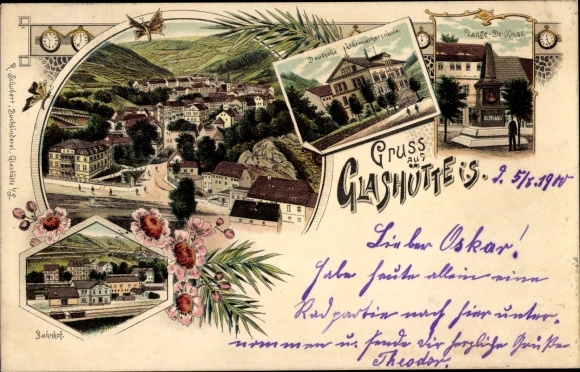 R. Schubert, Buchbinderei, Glashütte i/S.
Deutsche Uhrmacherschule.
Lange-Denkmal.
Gruss
aus
GLASHÜTTE i/S.
5/8. 1900
Lieber Oskar!
Habe heute allein eine
Radpartie nach hier unter-
nommen u. sende dir herzliche Grüße
Theodor.
Bahnhof.